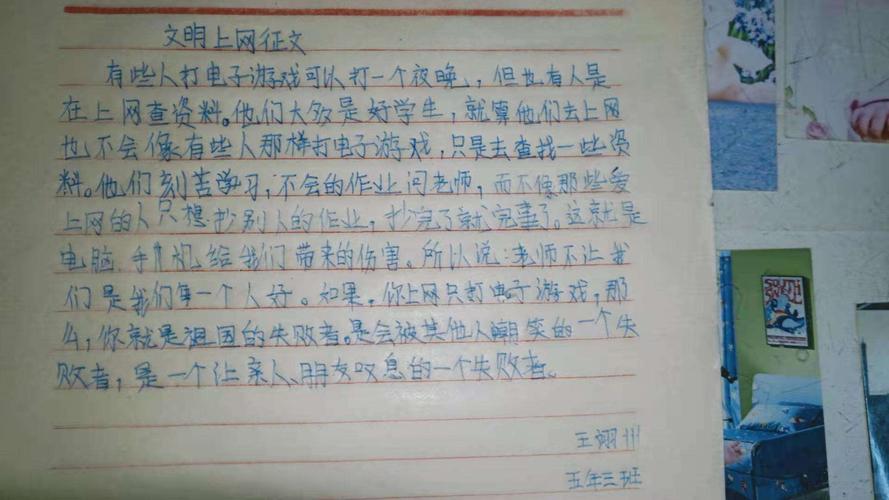 文明上网征文
有些人打电子游戏可以打一个夜晚，但也有人是
在上网查资料。他们大多是好学生，就算他们去上网
也不会像有些人那样打电子游戏，只是去查找一些资
料。他们刻苦学习，不会的作业问老师，而不像那些爱
上网的人只想抄别人的作业，抄完了就完事了。这就是
电脑、手机给我们带来的伤害。所以说：老师不让我
们是我们每一个人好。如果，你上网只打电子游戏，那
么，你就是祖国的失败者。是会被其他人嘲笑的一个失
败者，是一个让亲人、朋友叹息的一个失败者。
王翊州
五年三班